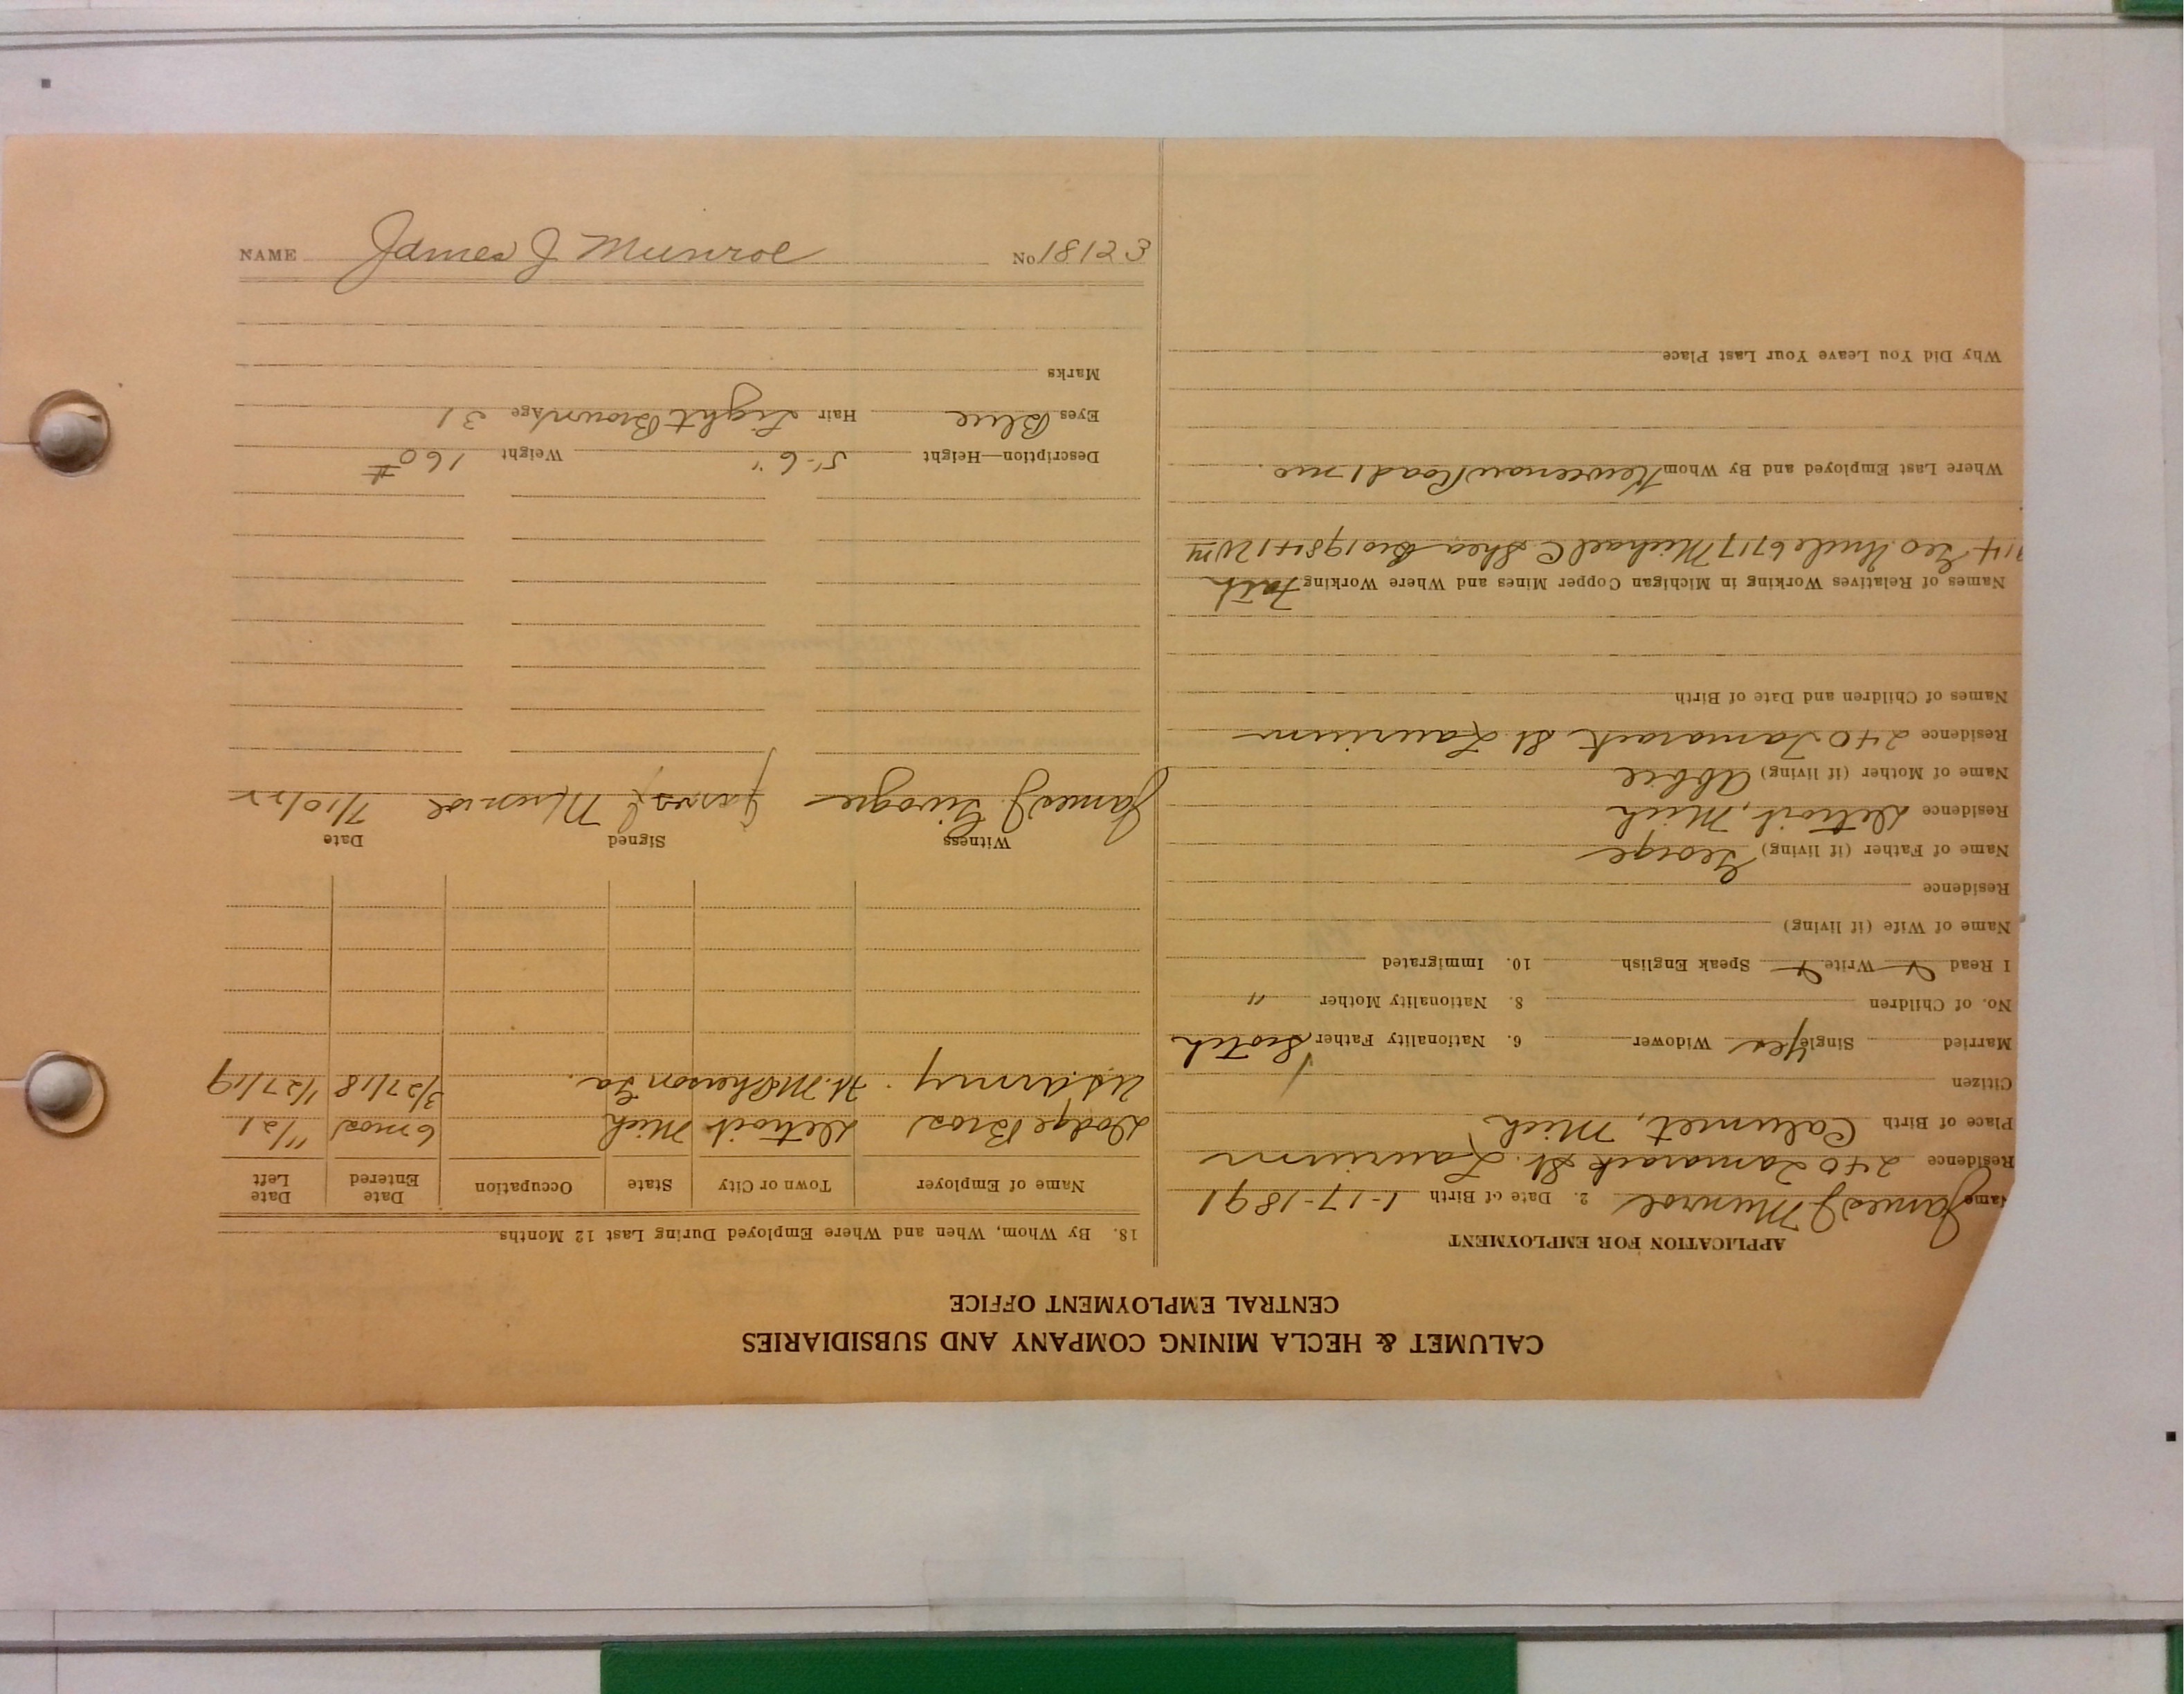 CALUMET & HECLA MINING COMPANY AND SUBSIDIARIES
CENTRAL EMPLOYMENT OFFICE
APPLICATION FOR EMPLOYMENT
Name James J Munroe 2. Date of Birth 1-17-1891
Residence 240 Tamarack St. Laurium
Place of Birth Calumet, Mich
Citizen
Married Single Yes Widower 6. Nationality Father Scotch
No. of Children 8. Nationality Mother "
I Read Write Speak English 10. Immigrated
Name of Wife (if living)
Residence
Name of Father (if living) George
Residence Detroit, Mich
Name of Mother (if living) Abbie
Residence 240 Tamarack St. Laurium
Names of Children and Date of Birth
Names of Relatives Working in Michigan Copper Mines and Where Working Fath
Geo Uncle 6717 Michael C. Shea Bro 1984
Where Last Employed and By Whom Keweenaw Road 1 mo.
Why Did You Leave Your Last Place
18. By Whom, When and Where Employed During Last 12 Months
Name of Employer Town or City State Occupation Date Entered Date Left
Dodge Bros Detroit Mich 6 mos 11/21
U.S. Army. Ft. McPherson Ga. 3/27/18 1/27/19
Witness Signed Date
James J. James J Munroe 7/10/22
Description—Height 5'-6" Weight 160#
Eyes Blue Hair Light Brown Age 31
Marks
NAME James J Munroe No 18123